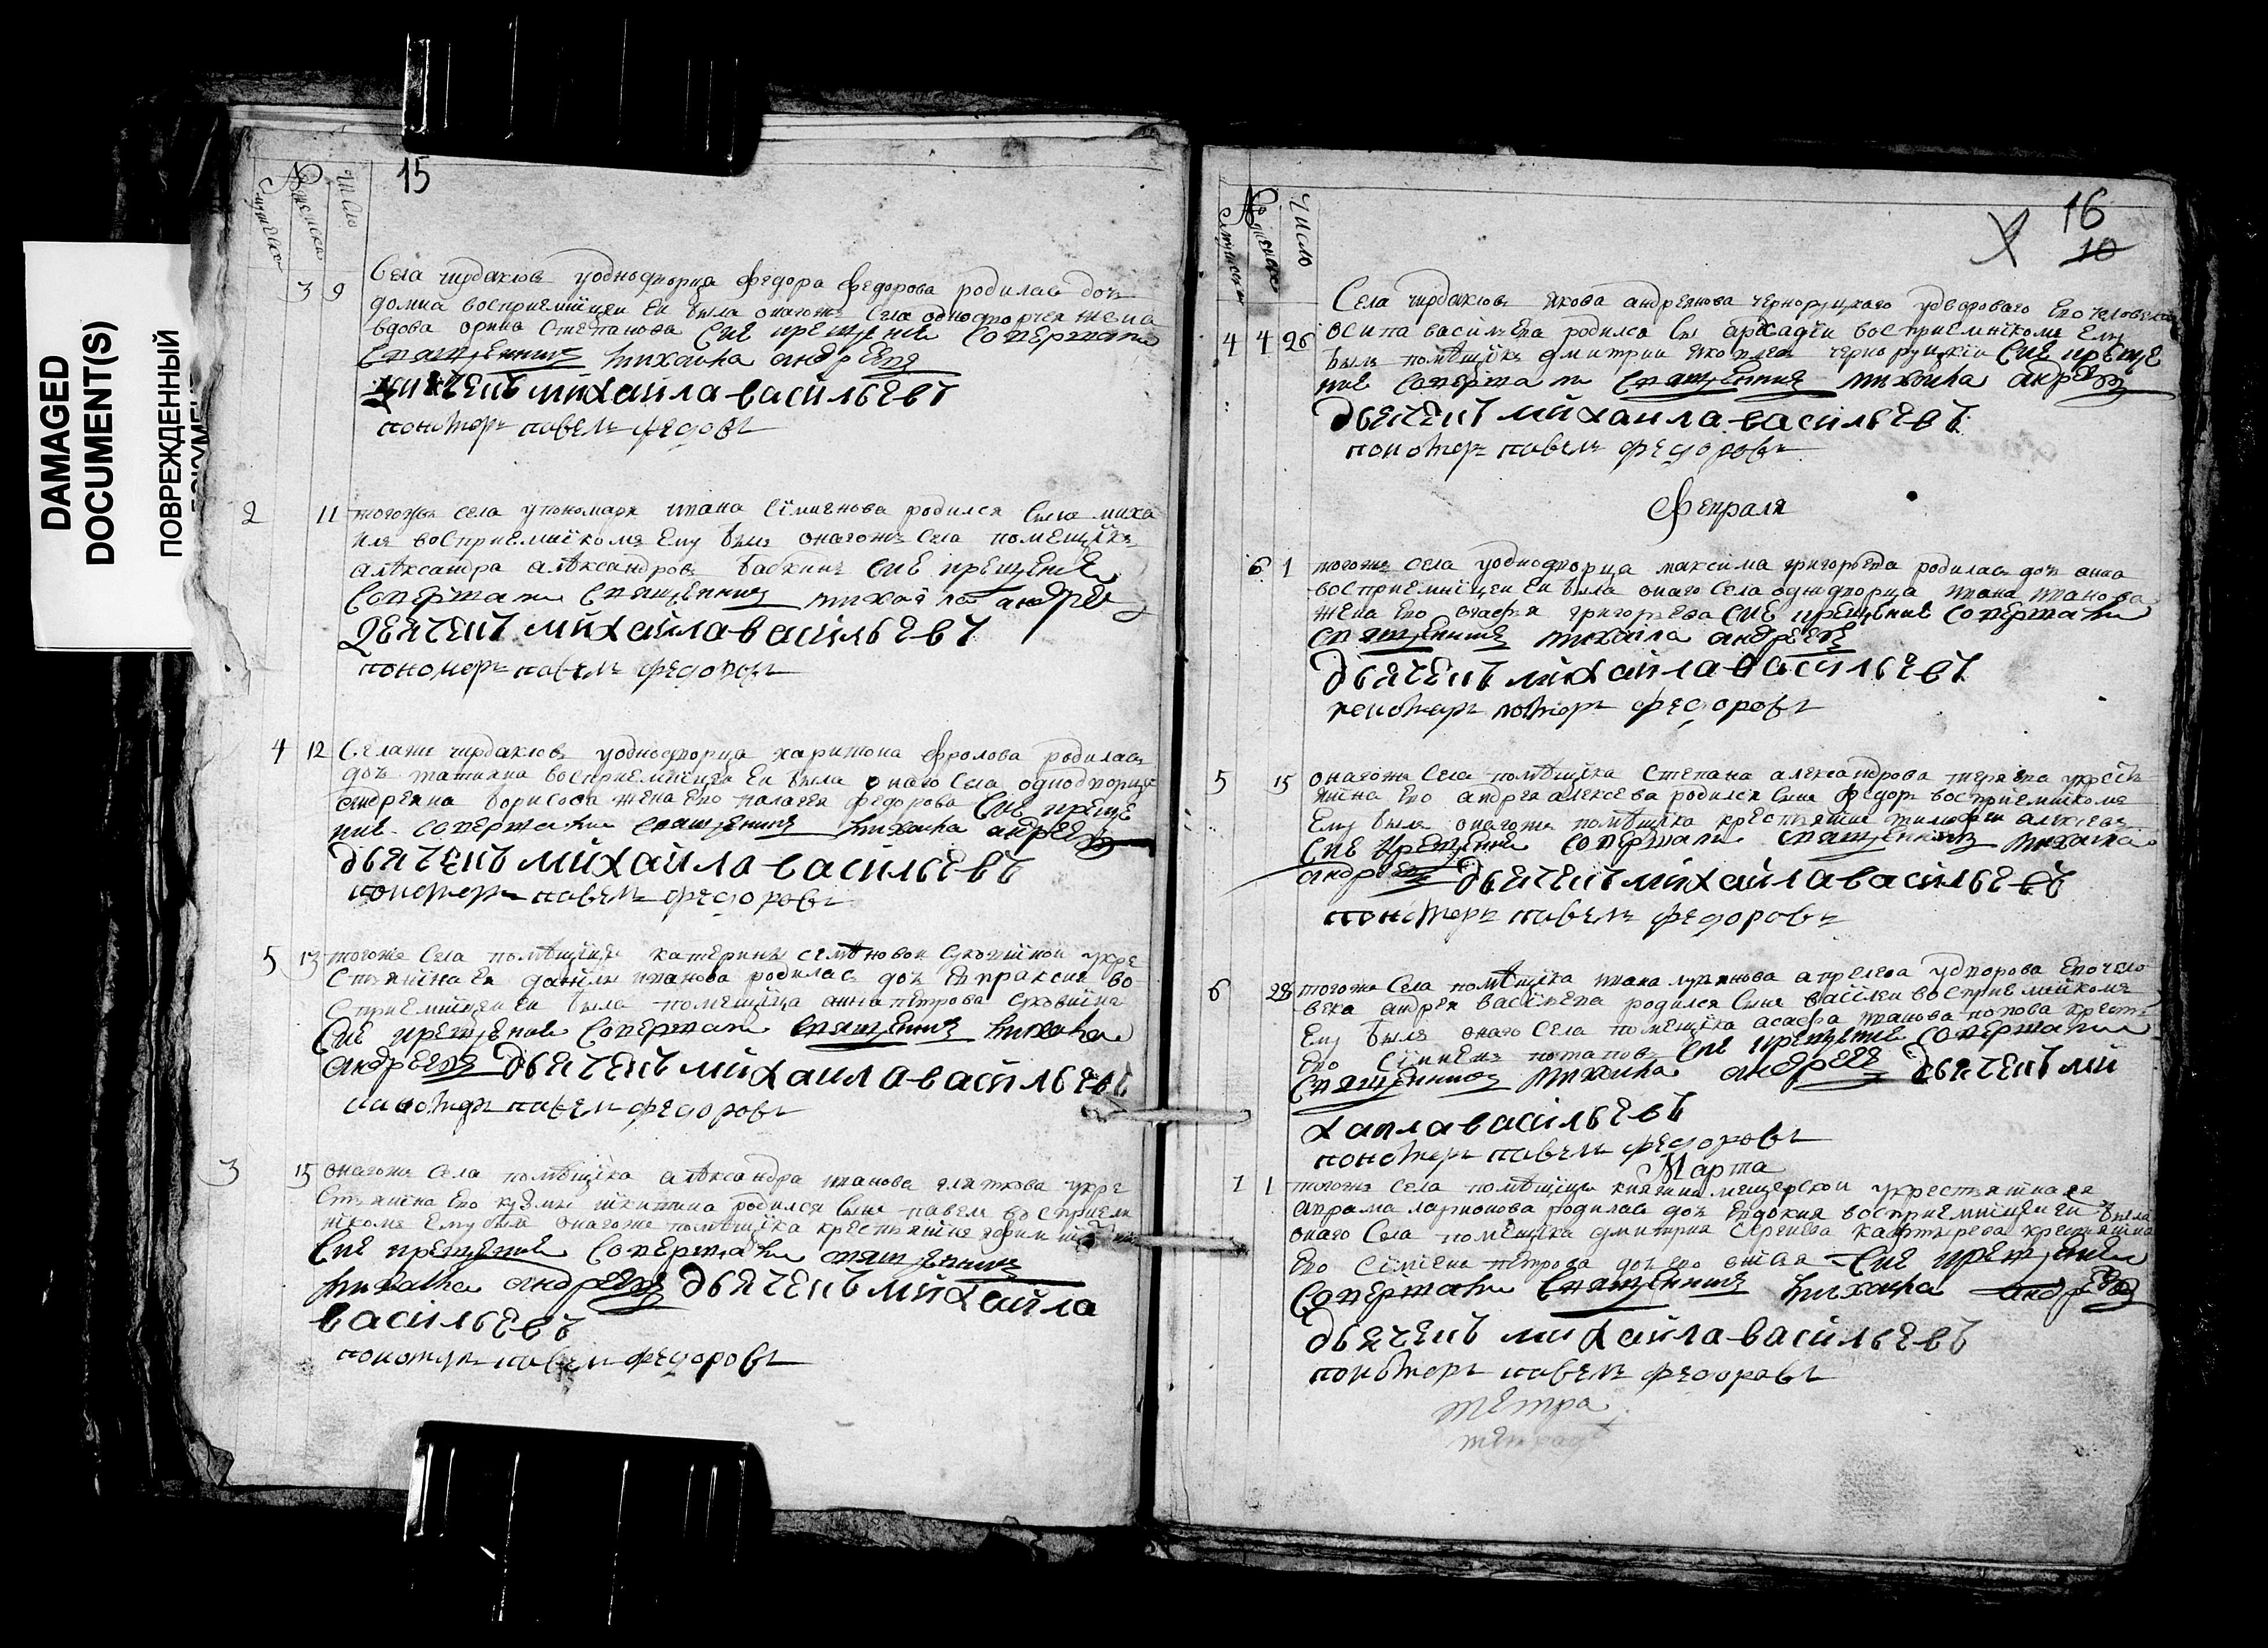 DAMAGED
DOCUMENT(S)
ПОВРЕЖДЕННЫЙ
15
№
мужеска
женска
число
3 9 Села чердаковъ уоднодворца федора федорова родилась дочь
домна восприемницеи еи была онагожъ села однодворческая жена
вдова орина степанова Сие крещение совершали
священникъ михаила андреевъ
дьячекъ михаила васильевъ
пономарь павелъ федоровъ
2 11 тогожъ села упономаря ивана сименова родился сынъ миха
илъ восприемникомъ ему былъ онагожъ села помещикъ
александра александровъ бабкинъ сие крещение
совершали священникъ михаила андреевъ
дьячекъ михаила васильевъ
пономарь павелъ федоровъ
4 12 Села чердаковъ уоднодворца харитона фролова родилась
дочь татиана восприемницеи еи была онаго села однодворца
андреяна борисова жена его палагея федорова Сие креще
ние совершали священникъ михаила андреевъ
дьячекъ михаила васильевъ
пономарь павелъ федоровъ
5 13 тогожъ села помѣщицы катерины семѣновои укре
стьянина ея данилы иванова родилась дочь евпраксия во
сприемницеи еи была помещица анна петрова
Сие крещение совершали священникъ михаила
андреевъ дьячекъ михаила васильевъ
пономарь павелъ федоровъ
3 15 онагожъ села помѣщика александра иванова укре
стьянина его кузмы никитина родился сынъ павелъ восприем
никомъ ему былъ онагожъ помѣщика крестьянинъ
Сие крещение совершали священникъ
михаила андреевъ дьячекъ михаила
васильевъ
пономарь павелъ федоровъ
16
10
№
мужеска
женска
число
4 4 26 Села чердаковъ якова андреянова черноруцкаго удвороваго его человека
осипа васильева родился сынъ аркадии восприемникомъ ему
былъ помѣщикъ дмитрии яковлевъ чернору‌цкии Сие креще
ние совершали священникъ михаила андреевъ
дьячекъ михаила васильевъ
пономарь павелъ федоровъ
февраля
6 1 тогожъ села уоднодворца максима григорьева родилась дочь анна
восприемницеи еи была онаго села однодворца ивана иванова
жена его агафья григорьева Сие крещение совершали
священникъ михаила андреевъ
дьячекъ михаила васильевъ
пономарь федоровъ
5 15 онагожъ села помѣщика степана александрова укрестья
нина его андрея алексеева родился сынъ федоръ восприемникомъ
ему былъ онагожъ помѣщика крестьянинъ
Сие крещение совершали священникъ михаила
андреевъ дьячекъ михаила васильевъ
пономарь павелъ федоровъ
6 28 тогожъ села помѣщика ивана лукянова апрелева удворова его чело
века андрея васильева родился сынъ василеи восприемникомъ
ему былъ онаго села помещика асафа иванова попова крестья
его потаповъ Сие крещение совершали
священникъ михаила андреевъ дьячекъ ми
хаила васильевъ
пономарь павелъ федоровъ
Марта
7 1 тогожъ села помѣщицы княгини мещерскои укрестьянина ея
аврама ларионова родилась дочь евдокия восприемницеи еи была
онаго села помещика дмитрия сергеева крестьянина
его петрова дочь его Сие крещение
совершали священникъ михаила андреевъ
дьячекъ михаила васильевъ
пономарь павелъ федоровъ
тетра
тетрат